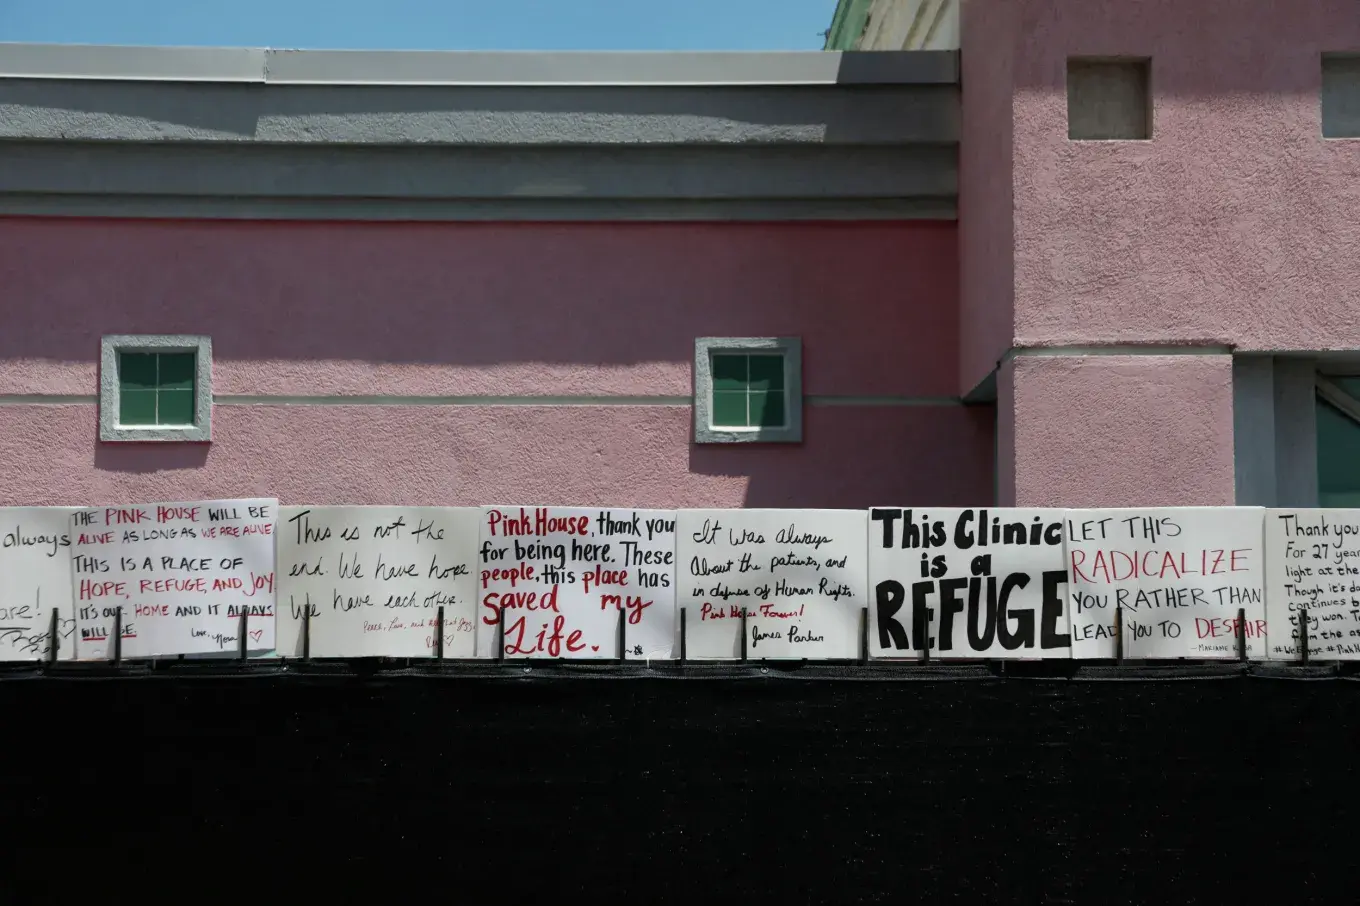 always
are!
THE PINK HOUSE WILL BE
ALIVE AS LONG AS WE ARE ALIVE
THIS IS A PLACE OF
HOPE, REFUGE, AND JOY
IT'S OUR HOME AND IT ALWAYS
WILL BE.
Love,
This is not the
end. We have hope.
We have each other.
Peace, Love, and
Pink House, thank you
for being here. These
people, this place has
saved my
Life.
It was always
About the patients, and
in defense of Human Rights.
Pink House Forever!
James Parker
This Clinic
is a
REFUGE
LET THIS
RADICALIZE
YOU RATHER THAN
LEAD YOU TO DESPAIR
- MARIAME KABA
Thank you
For 27 year
light at the
Though it's da
continues b
they won. T
from the as
#WeEngage #PinkH